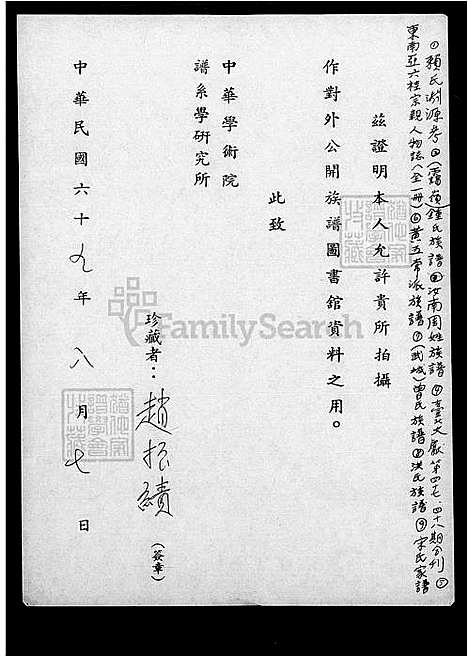 ①賴氏淵源考②(霞嶺)鍾氏族譜③汝南周姓族譜④臺北文獻第四七、四十八期合刊⑤
東南亞六桂宗親人物誌(全一冊)⑥黃五常派族譜⑦(武城)曾氏族譜⑧洪氏族譜⑨宋氏家譜
茲證明本人允許貴所拍攝
作對外公開族譜圖書舘資料之用。
此致
中華學術院
譜系學研究所
珍藏者：趙振績
(簽章)
中華民國六十九年八月七日
FamilySearch